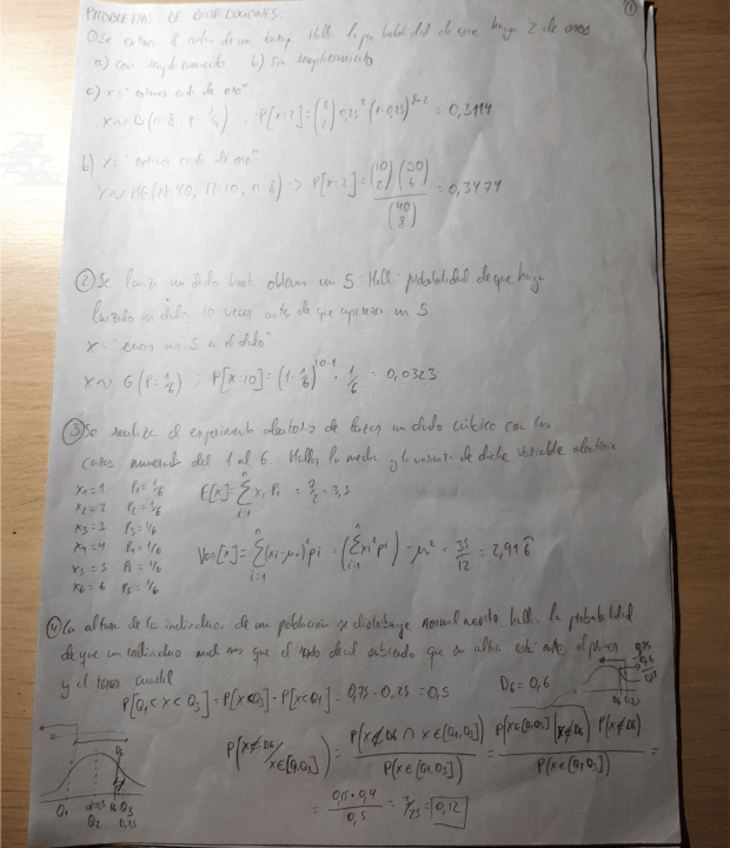 PROBLEMAS DE DISTRIBUCIONES:
①
① Se extraen 8 cartas de una baraja. Halla la probabilidad de que haya 2 de oros
a) con remplazamiento b) sin remplazamiento
a) x = "extraer carta de oro"
x ~ B(n=8, p=1/4) ; P[x=2] = (8 2) 0,25² (1-0,25)^8-2 = 0,3114
b) Y = "extraer carta de oro"
Y ~ HG(N=40, M=10, n=8) -> P[x=2] = (10 2)(30 6) / (40 8) = 0,3474
② Se lanza un dado hasta obtener un 5. Halla probabilidad de que haya
lanzado dado 10 veces antes de que aparezca un 5
x = "sacar un 5 en el dado"
x ~ G(P=1/6) ; P[x=10] = (1-1/6)^10-1 · 1/6 = 0,0323
③ Se realiza el experimento aleatorio de lanzar un dado cúbico con las
caras numeradas del 1 al 6. Halla la media y la varianza de dicha variable aleatoria
x₁=1 P₁=1/6 E[x] = Σ xᵢ Pᵢ = 7/2 = 3,5
x₂=2 P₂=1/6
x₃=3 P₃=1/6
x₄=4 P₄=1/6 Var[x] = Σ(xᵢ-μₓ)² pᵢ = (Σxᵢ² pᵢ) - μₓ² = 35/12 = 2,916̂
x₅=5 P₅=1/6
x₆=6 P₅=1/6
④ La altura de los individuos de una población se distribuye normalmente, halla la probabilidad
de que un individuo mida mas que el sexto decil sabiendo que su altura está entre el primer
y el tercer cuartil
P[Q₁<x<Q₃] = P[x<Q₃] - P[x<Q₁] = 0,75 - 0,25 = 0,5 D₆=0,6
0,75
0,6
0,15
P(x≮D₆ / x∈[Q₁,Q₃]) = P(x≮D₆ ∩ x∈[Q₁,Q₃]) / P(x∈[Q₁,Q₃]) = P(x∈[Q₁,Q₃] | x≮D₆) · P(x≮D₆) / P(x∈[Q₁,Q₃]) =
= 0,15·0,4 / 0,5 = 3/25 = 0,12
Q₁ Q₂ Q₃
0,75